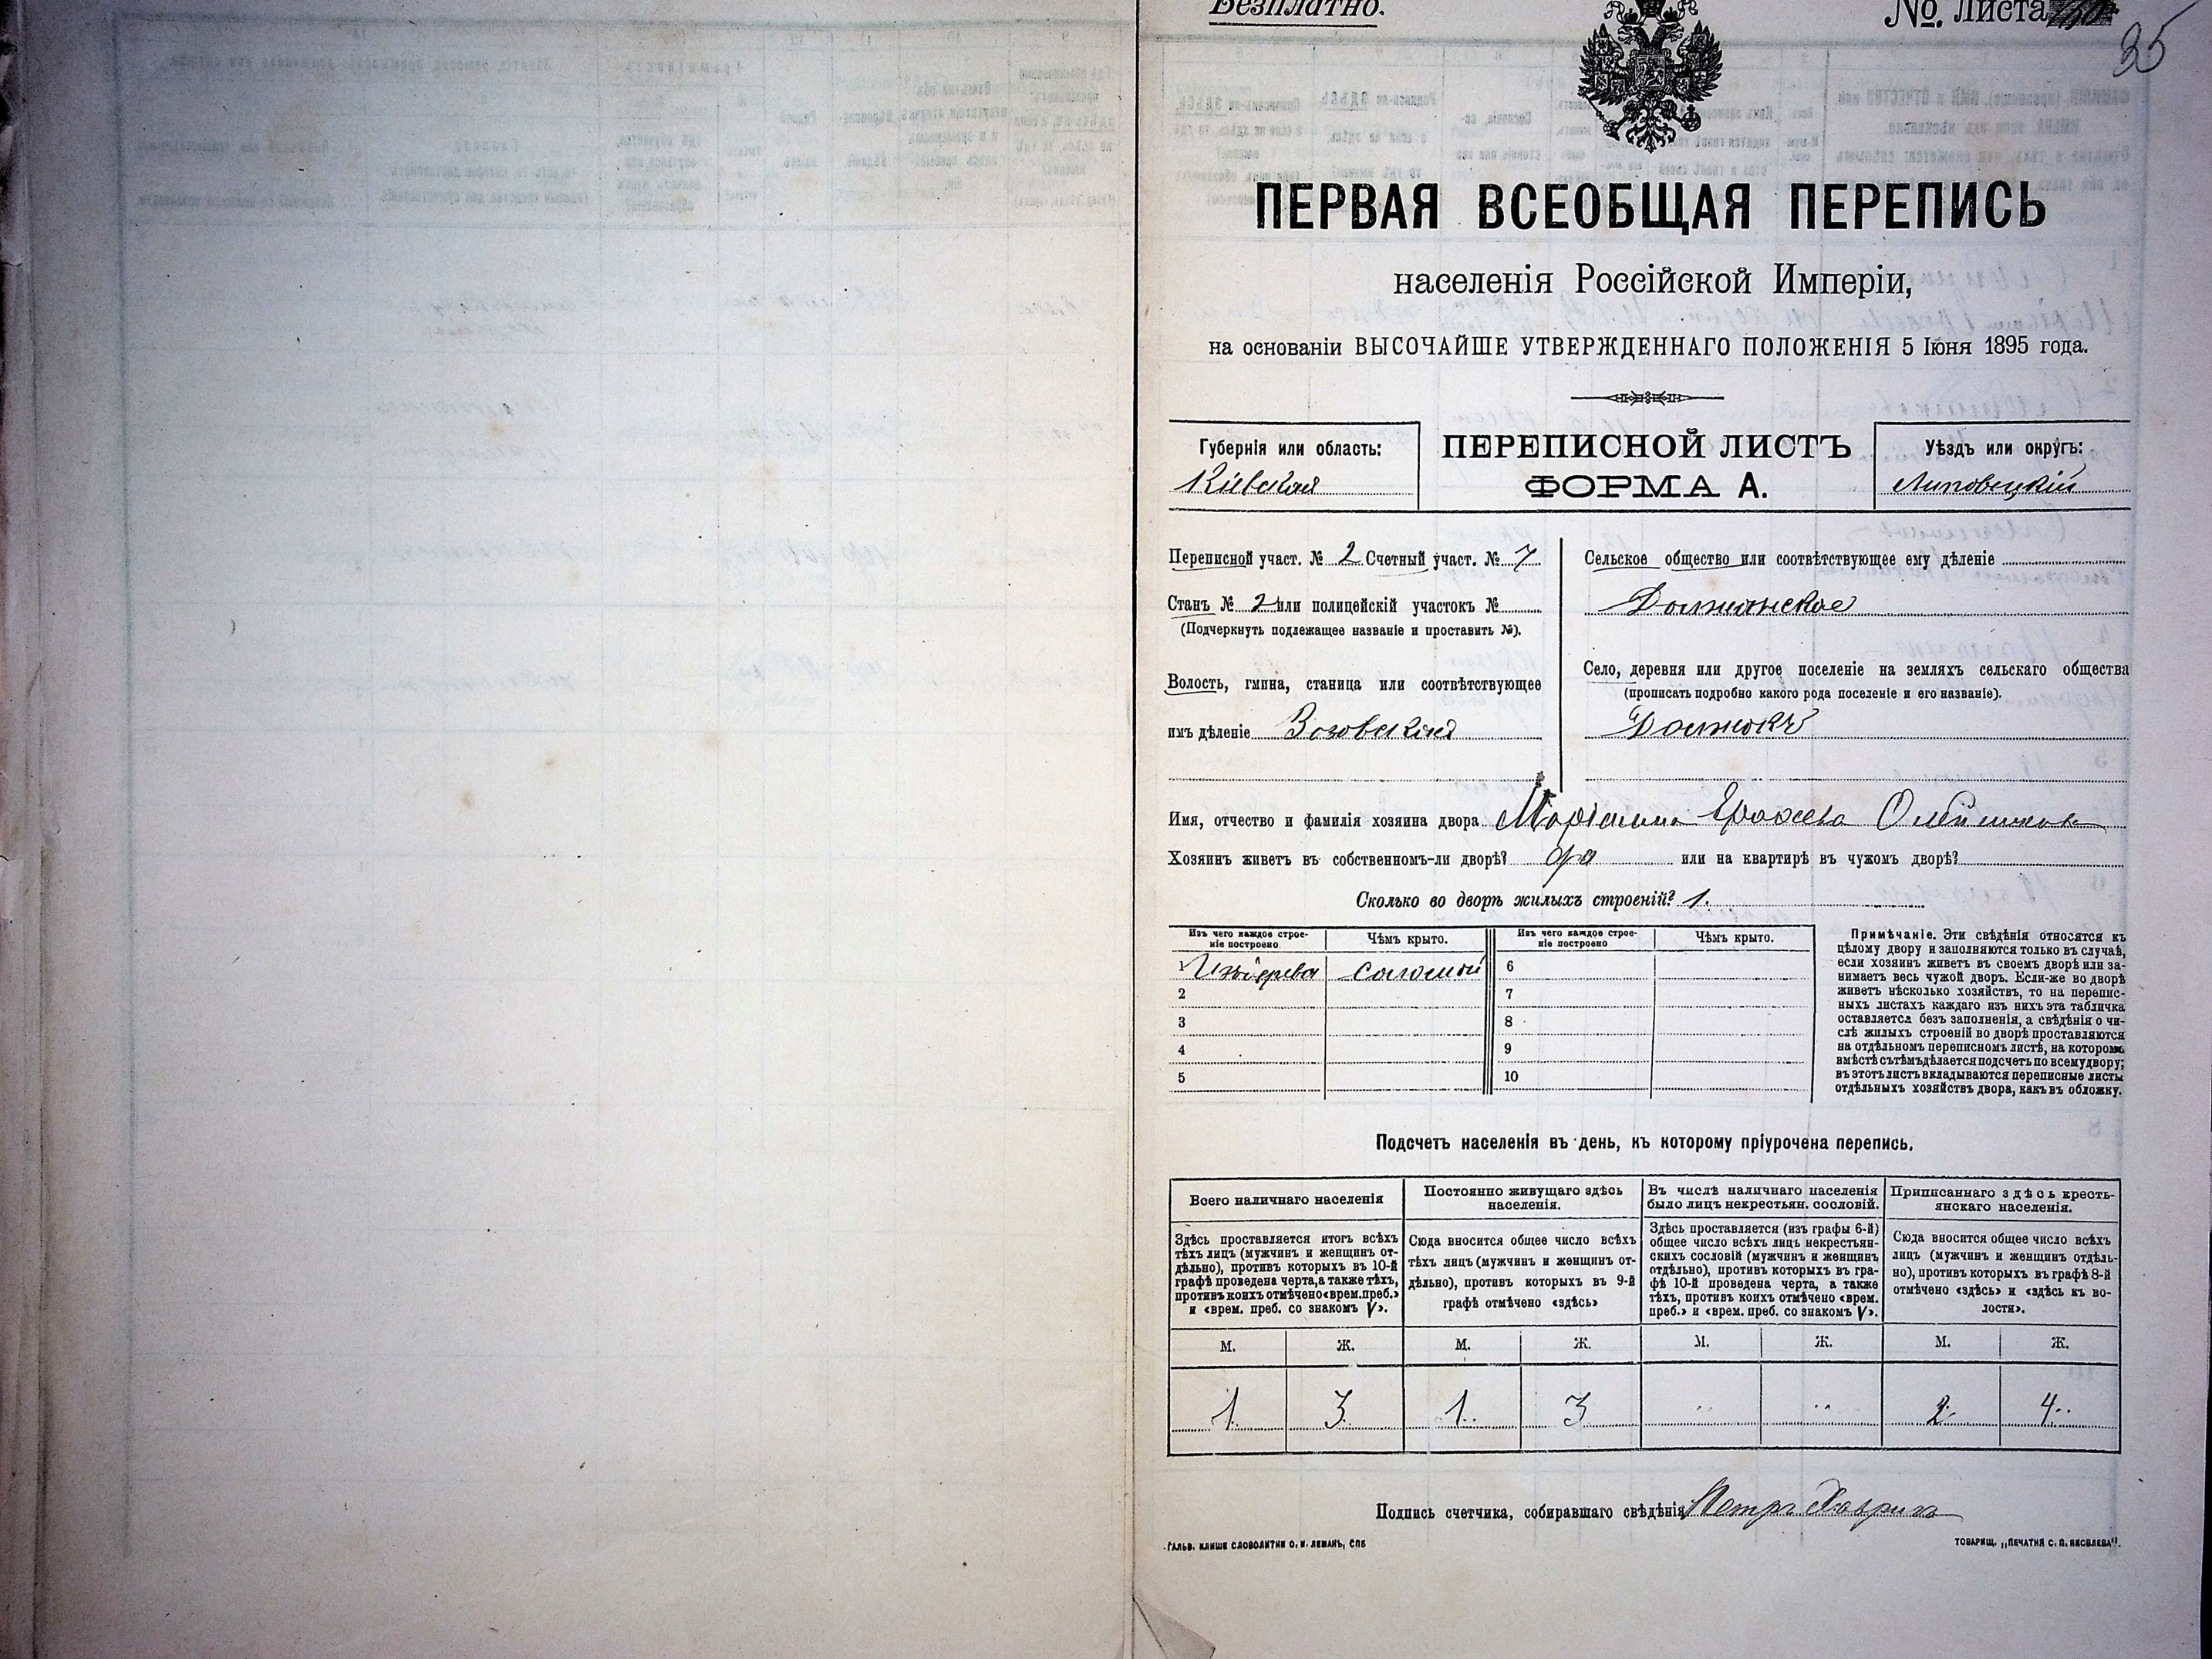 Безплатно.
№. Листа
35
ПЕРВАЯ ВСЕОБЩАЯ ПЕРЕПИСЬ
населенія Россійской Имперіи,
на основаніи ВЫСОЧАЙШЕ УТВЕРЖДЕННАГО ПОЛОЖЕНІЯ 5 Іюня 1895 года.
Губернія или область:
Кіевская
ПЕРЕПИСНОЙ ЛИСТЪ
ФОРМА А.
Уѣздъ или округъ:
Липовецкій
Переписной участ. № 2 Счетный участ. № 7
Станъ № 2 или полицейскій участокъ №
(Подчеркнуть подлежащее названіе и проставить №).
Волость, гмина, станица или соотвѣтствующее
имъ дѣленіе Зозовская
Сельское общество или соотвѣтствующее ему дѣленіе
Должанское
Село, деревня или другое поселеніе на земляхъ сельскаго общества
(прописать подробно какого рода поселеніе и его названіе).
Должокъ
Имя, отчество и фамилія хозяина двора Маріанна
Хозяинъ живетъ въ собственномъ-ли дворѣ? да или на квартирѣ въ чужомъ дворѣ?
Сколько во дворѣ жилыхъ строеній? 1.
Изъ чего каждое строе-
ніе построено
Чѣмъ крыто.
Изъ чего каждое строе-
ніе построено
Чѣмъ крыто.
1 Изъ дерева соломой 6
2 7
3 8
4 9
5 10
Примѣчаніе. Эти свѣдѣнія относятся къ
цѣлому двору и заполняются только въ случаѣ,
если хозяинъ живетъ въ своемъ дворѣ или за-
нимаетъ весь чужой дворъ. Если-же во дворѣ
живетъ нѣсколько хозяйствъ, то на перепис-
ныхъ листахъ каждаго изъ нихъ эта табличка
оставляется безъ заполненія, а свѣдѣнія о чи-
слѣ жилыхъ строеній во дворѣ проставляются
на отдѣльномъ переписномъ листѣ, на которомъ
вмѣстѣ съ тѣмъ дѣлается подсчетъ по всему двору;
въ этотъ листъ вкладываются переписные листы
отдѣльныхъ хозяйствъ двора, какъ въ обложку.
Подсчетъ населенія въ день, къ которому пріурочена перепись.
Всего наличнаго населенія
Здѣсь проставляется итогъ всѣхъ
тѣхъ лицъ (мужчинъ и женщинъ от-
дѣльно), противъ которыхъ въ 10-й
графѣ проведена черта, а также тѣхъ,
противъ коихъ отмѣчено «врем. преб.»
и «врем. преб. со знакомъ V».
Постоянно живущаго здѣсь
населенія.
Сюда вносится общее число всѣхъ
тѣхъ лицъ (мужчинъ и женщинъ от-
дѣльно), противъ которыхъ въ 9-й
графѣ отмѣчено «здѣсь»
Въ числѣ наличнаго населенія
было лицъ некрестьян. сословій.
Здѣсь проставляется (изъ графы 6-й)
общее число всѣхъ лицъ некрестьян-
скихъ сословій (мужчинъ и женщинъ
отдѣльно), противъ которыхъ въ гра-
фѣ 10-й проведена черта, а также
тѣхъ, противъ коихъ отмѣчено «врем.
преб.» и «врем. преб. со знакомъ V».
Приписаннаго здѣсь кресть-
янскаго населенія.
Сюда вносится общее число всѣхъ
лицъ (мужчинъ и женщинъ отдѣль-
но), противъ которыхъ въ графѣ 8-й
отмѣчено «здѣсь» и «здѣсь къ во-
лости».
М. Ж. М. Ж. М. Ж. М. Ж.
1 3 1 3 " " 2 4
Подпись счетчика, собиравшаго свѣдѣнія Петръ
ГАЛЬВ. КЛИШЕ СЛОВОЛИТНИ О. И. ЛЕМАНЪ, СПБ
ТОВАРИЩ. „ПЕЧАТНЯ С. П. ЯКОВЛЕВА".